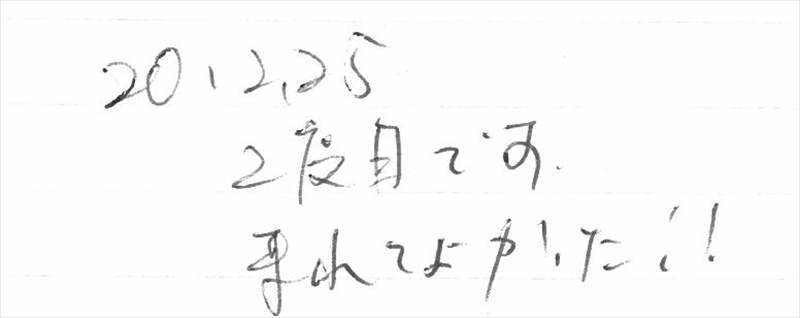 20.12.25
2度目です.
来れてよかった!!